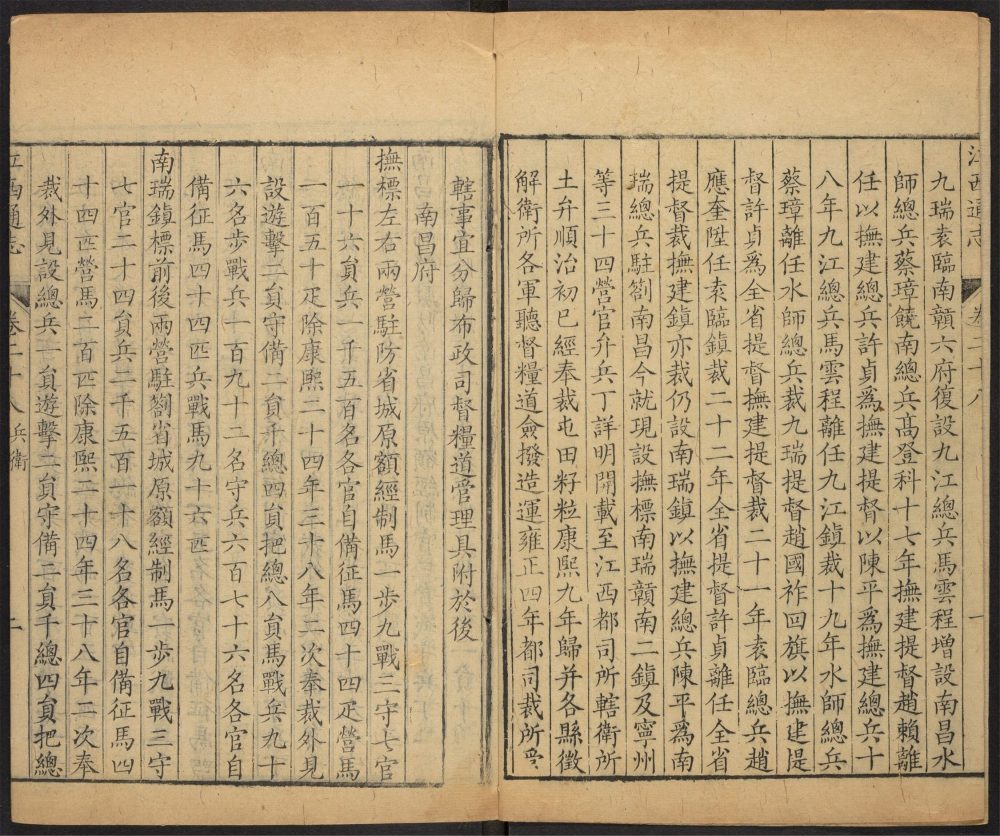 江西通志 卷二十八 一
九瑞袁臨南贛六府復設九江總兵馬雲程增設南昌水
師總兵蔡璋饒南總兵高登科十七年撫建提督趙賴離
任以撫建總兵許貞爲撫建提督以陳平爲撫建總兵十
八年九江總兵馬雲程離任九江鎮裁十九年水師總兵
蔡璋離任水師總兵裁九瑞提督趙國祚回旗以撫建提
督許貞爲全省提督撫建提督裁二十一年袁臨總兵趙
應奎陞任袁臨鎮裁二十二年全省提督許貞離任全省
提督裁撫建鎮亦裁仍設南瑞鎮以撫建總兵陳平爲南
瑞總兵駐劄南昌今就現設撫標南瑞贛南二鎮及寧州
等三十四營官弁兵丁詳明開載至江西都司所轄衛所
土弁順治初已經奉裁屯田籽粒康熙九年歸并各縣徵
解衛所各軍聽督糧道僉撥造運雍正四年都司裁所
轄事宜分歸布政司督糧道管理具附於後
南昌府
撫標左右兩營駐防省城原額經制馬一步九戰三守七官
一十六員兵一千五百名各官自備征馬四十四疋營馬
一百五十疋除康熙二十四年三十八年二次奉裁外見
設遊擊二員守備二員千總四員把總八員馬戰兵九十
六名步戰兵一百九十二名守兵六百七十六名各官自
備征馬四十四匹兵戰馬九十六匹
南瑞鎮標前後兩營駐劄省城原額經制馬一步九戰三守
七官二十四員兵二千五百一十八名各官自備征馬四
十四匹營馬二百匹除康熙二十四年三十八年二次奉
裁外見設總兵一員遊擊二員守備二員千總四員把總
江西通志 卷二十八 兵衛 二